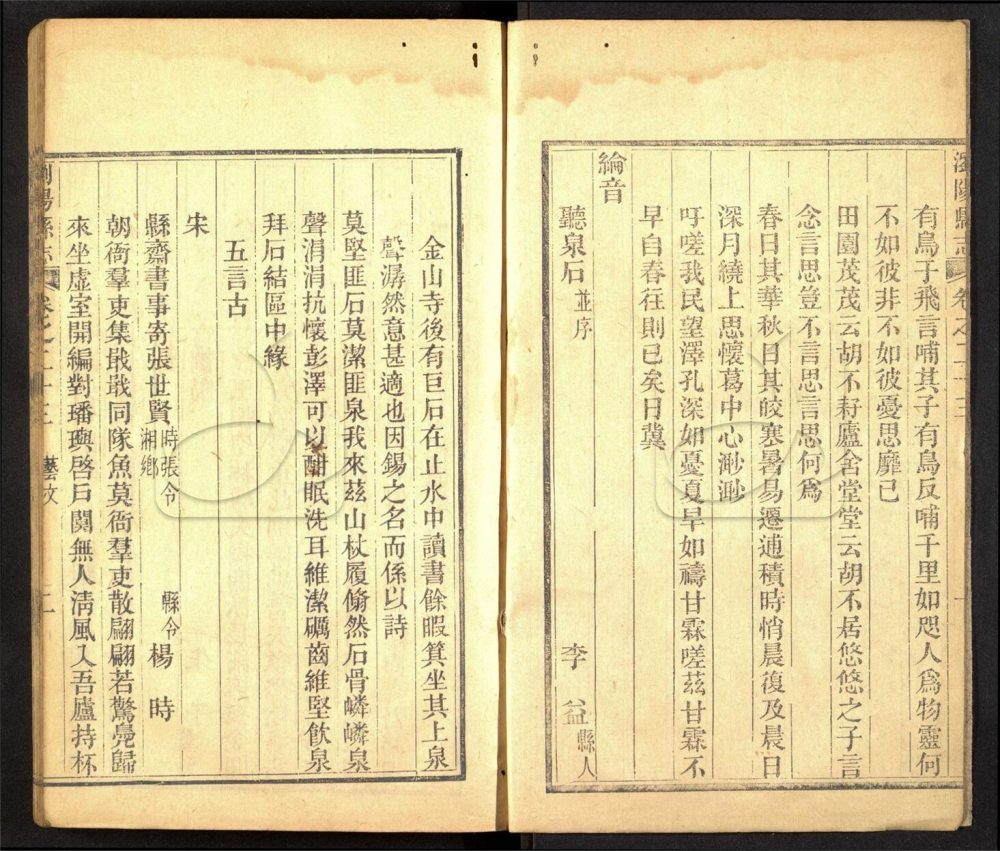 瀏陽縣志 卷之二十三
有鳥子飛言哺其子有鳥反哺千里如咫人爲物靈何
不如彼非不如彼憂思靡已
田園茂茂云胡不耔廬舍堂堂云胡不居悠悠之子言
念言思豈不言思言思何爲
春日其華秋日其皎寒暑易遷逋積時悄晨復及晨日
深月繞上思懷葛中心渺渺
吁嗟我民望澤孔深如憂夏旱如禱甘霖嗟茲甘霖不
早自春徃則已矣日冀
綸音
聽泉石 並序 李益 縣人
金山寺後有巨石在止水中讀書餘暇箕坐其上泉
聲潺然意甚適也因錫之名而係以詩
莫堅匪石莫潔匪泉我來茲山杖履翛然石骨嶙嶙泉
聲涓涓抗懷彭澤可以酣眠洗耳維潔礪齒維堅飲泉
拜石結區中緣
五言古
宋
縣齋書事寄張世賢 時張令湘鄉 縣令 楊時
朝衙羣吏集戢戢同隊魚莫衙羣吏散翩翩若驚鳧歸
來坐虛室開編對璠璵啓戶闃無人淸風入吾廬持杯
瀏陽縣志 卷之二十三 藝文 二